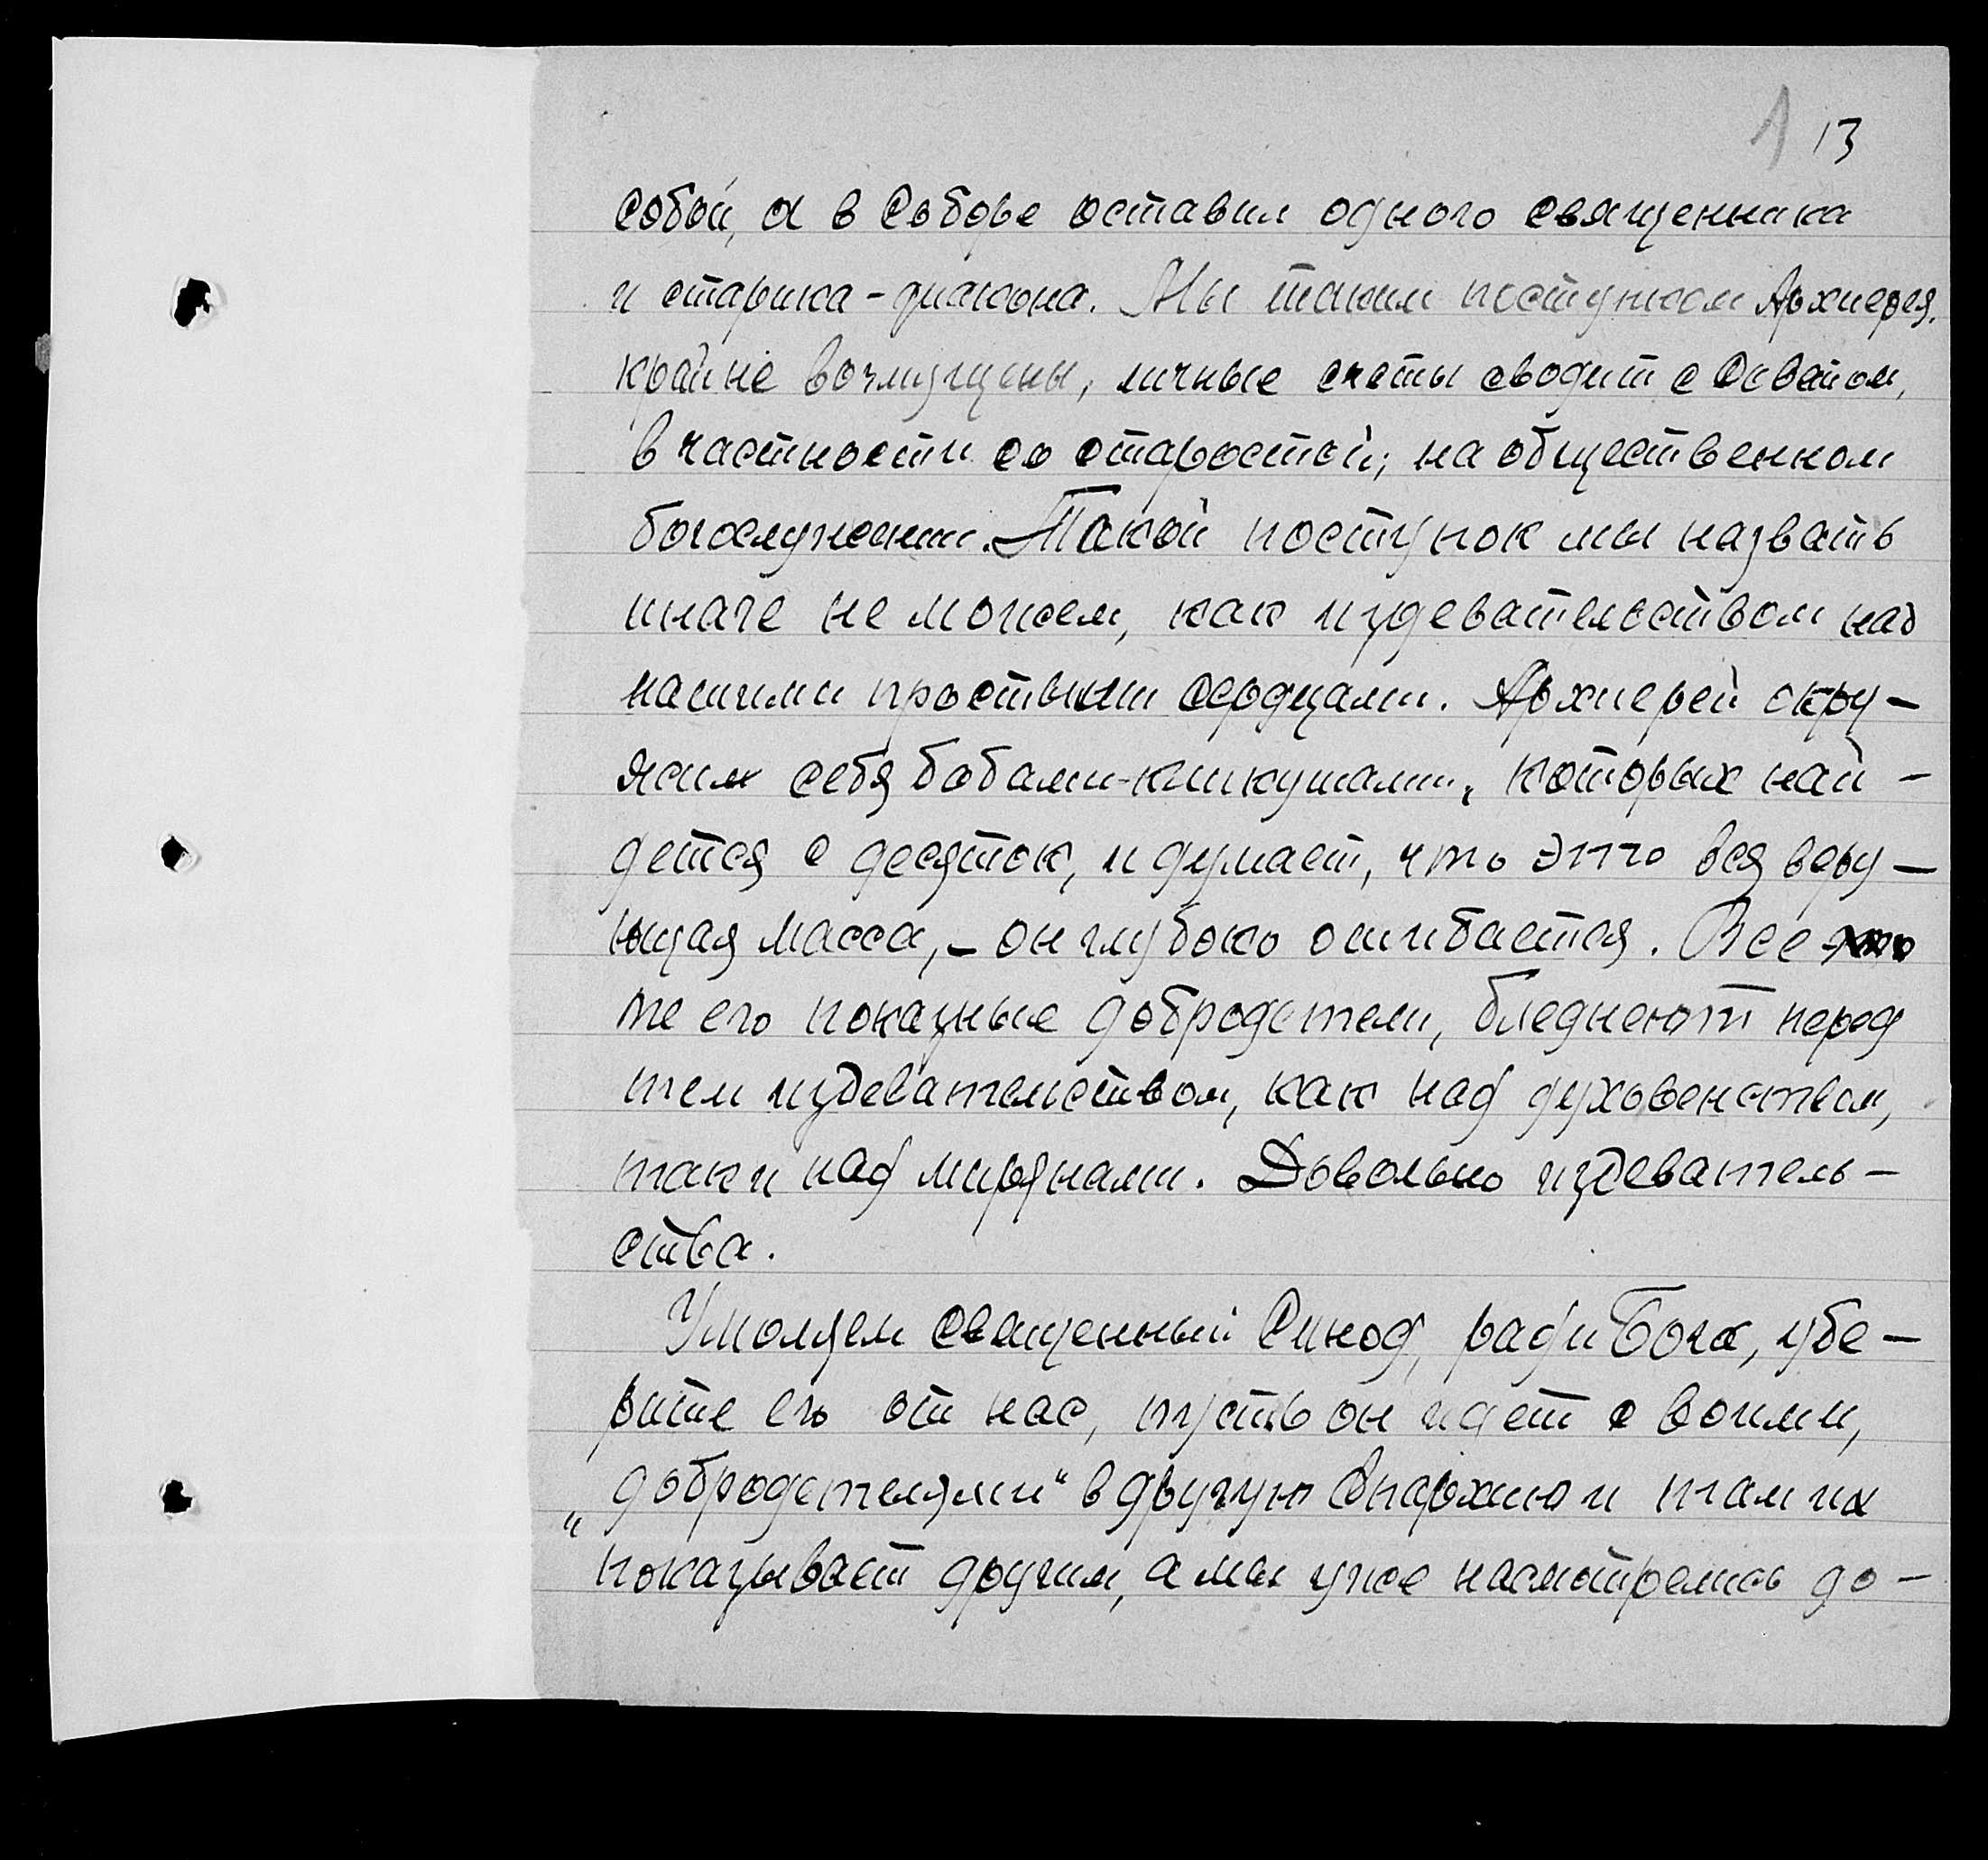 1 13
собой, а в Соборе оставил одного священника
и старика-диакона. Мы таким поступком Архиерея.
крайне возмущены, личные счеты сводит с
в частности со старостой; на общественном
богослужении. Такой поступок мы назвать
иначе не можем, как издевательством над
нашими простыми сердцами. Архиерей окру-
жил себя бабами-кликушами, которых най-
дется с десяток, и думает, что это вся веру-
ющая масса, - он глубоко ошибается. Все
те его показные добродетели, бледнеют перед
тем издевательством, как над духовенством,
так и над мирянами. Довольно издеватель-
ства.
Умоляем священный Синод, ради Бога, убе-
рите его от нас, пусть он идет с воими,
„добродетелями“ в другую Епархию и там их
показывает другим, а мы уже насмотрелись до-